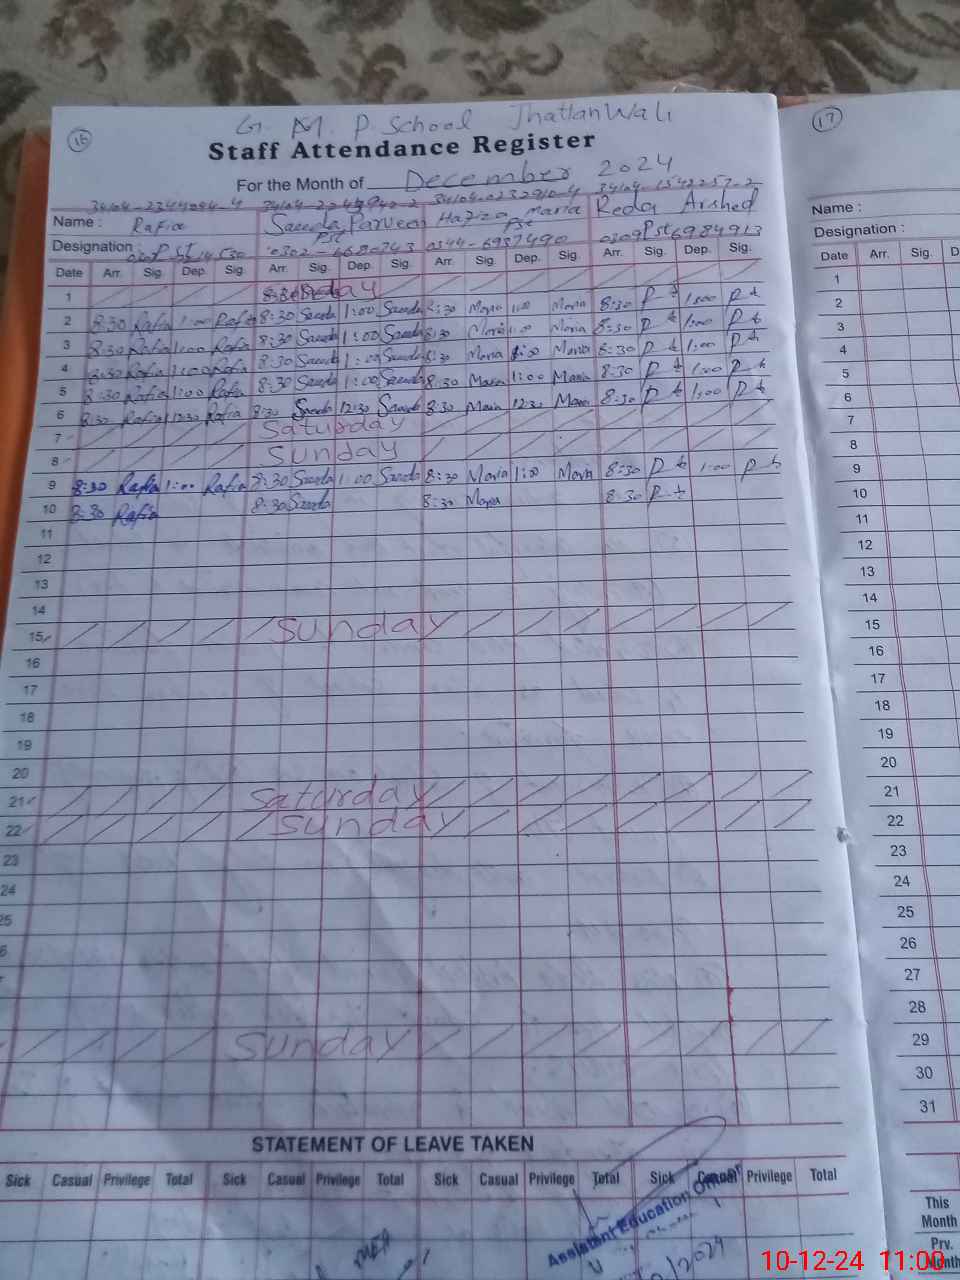 16
G. M. P. School Jhatlan Wali
Staff Attendance Register
For the Month of December 2024
Name : Rafia Saeeda Parveen Hafiza Maria Reda Arshed
Designation : PST PST PST PST
Date Arr. Sig. Dep. Sig. Arr. Sig. Dep. Sig. Arr. Sig. Dep. Sig. Arr. Sig. Dep. Sig.
1 Sunday
2 8:30 Rafia 1:00 Rafia 8:30 Saeeda 1:00 Saeeda 8:30 Maria 1:00 Maria 8:30 1:00
3 8:30 Rafia 1:00 Rafia 8:30 Saeeda 1:00 Saeeda 8:30 Maria 1:00 Maria 8:30 1:00
4 8:30 Rafia 1:00 Rafia 8:30 Saeeda 1:00 Saeeda 8:30 Maria 1:00 Maria 8:30 1:00
5 8:30 Rafia 1:00 Rafia 8:30 Saeeda 1:00 Saeeda 8:30 Maria 1:00 Maria 8:30 1:00
6 8:30 Rafia 12:30 Rafia 8:30 Saeeda 12:30 Saeeda 8:30 Maria 12:30 Maria 8:30 1:00
7 Saturday
8 Sunday
9 8:30 Rafia 1:00 Rafia 8:30 Saeeda 1:00 Saeeda 8:30 Maria 1:00 Maria 8:30 1:00
10 8:30 Rafia 8:30 Saeeda 8:30 Maria 8:30
11
12
13
14
15 Sunday
16
17
18
19
20
21 Saturday
22 Sunday
23
24
Sunday
STATEMENT OF LEAVE TAKEN
Sick Casual Privilege Total Sick Casual Privilege Total Sick Casual Privilege Total Sick Casual Privilege Total
Assistant Education Officer
17
Name :
Designation :
Date Arr. Sig.
1
2
3
4
5
6
7
8
9
10
11
12
13
14
15
16
17
18
19
20
21
22
23
24
25
26
27
28
29
30
31
This
Month
Prv.
Month
10-12-24 11:00